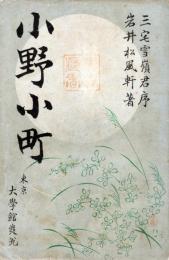 三宅雪嶺君序
岩井松風軒著
小野小町
東京
大學館發兌